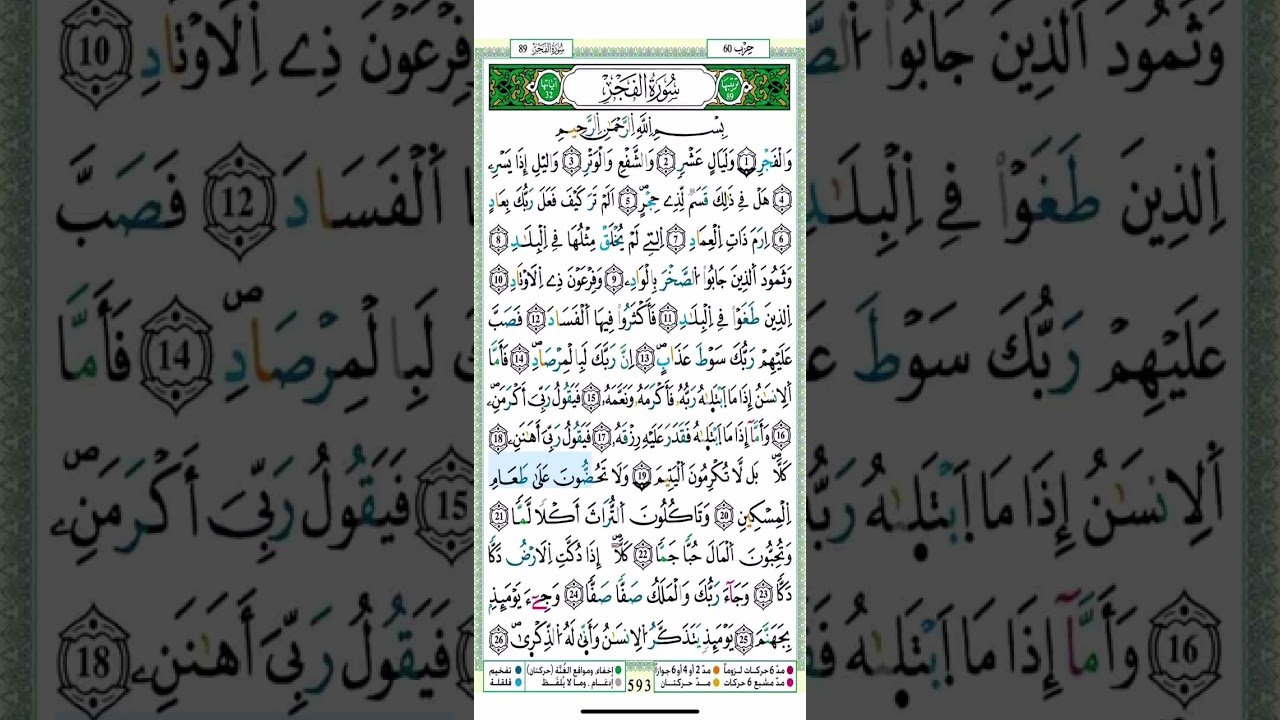 سُورَةُ الفَجْرِ 89
حِزْب 60
ترتيبها 89
سُورَةُ الْفَجْرِ
آياتها 32
بِسْمِ اِللَّهِ اِلرَّحْمَٰنِ اِلرَّحِيمِ
وَالْفَجْرِ 1 وَلَيَالٍ عَشْرٖ 2 وَالشَّفْعِ وَالْوَتْرِ 3 وَاليْلِ إِذَا يَسْرِۦ
4 هَلْ فِي ذَٰلِكَ قَسَمٞ لِّذِے حِجْرٍۖ 5 اَلَمْ تَرَ كَيْفَ فَعَلَ رَبُّكَ بِعَادٍ
6 اِرَمَ ذَاتِ اِلْعِمَادِ 7 اِلتِے لَمْ يُخْلَقْ مِثْلُهَا فِے اِلْبِلَٰدِ 8
وَثَمُودَ اَلذِينَ جَابُواْ اُلصَّخْرَ بِالْوَادِۦ 9 وَفِرْعَوْنَ ذِے اِلَاوْتَادِ 10
اِلذِينَ طَغَوْاْ فِے اِلْبِلَٰدِ 11 فَأَكْثَرُواْ فِيهَا اَلْفَسَادَ 12 فَصَبَّ
عَلَيْهِمْ رَبُّكَ سَوْطَ عَذَابٍۖ 13 اِنَّ رَبَّكَ لَبِالْمِرْصَادِۖ 14 فَأَمَّا
اَلِانسَٰنُ إِذَا مَا اَبْتَلَىٰهُ رَبُّهُۥ فَأَكْرَمَهُۥ وَنَعَّمَهُۥ 15 فَيَقُولُ رَبِّيَ أَكْرَمَنِۦۖ
16 وَأَمَّآ إِذَا مَا اَبْتَلَىٰهُ فَقَدَرَ عَلَيْهِ رِزْقَهُۥ 17 فَيَقُولُ رَبِّيَ أَهَٰنَنِۦ 18
كَلَّاۖ بَل لَّا تُكْرِمُونَ اَلْيَتِيمَ 19 وَلَا تَحُضُّونَ عَلَىٰ طَعَامِ
اِلْمِسْكِينِ 20 وَتَاكُلُونَ اَلتُّرَاثَ أَكْلاٗ لَّمّاٗ 21
وَتُحِبُّونَ اَلْمَالَ حُبّاٗ جَمّاٗ 22 كَلَّاۖ إِذَا دُكَّتِ اِلَارْضُ دَكّاٗ
دَكّاٗ 23 وَجَآءَ رَبُّكَ وَالْمَلَكُ صَفّاٗ صَفّاٗ 24 وَجِےٓءَ يَوْمَئِذِۭ
بِجَهَنَّمَ 25 يَوْمَئِذٖ يَتَذَكَّرُ اُلِانسَٰنُ وَأَنَّىٰ لَهُ اُلذِّكْر۪ىٰ 26
مدّ 6 حركات لزوماً مدّ 2 أو 4 أو 6 جوازاً
مدّ مشبع 6 حركات مدّ حركتان
593
إخفاء، ومواقع الغُنَّة (حركتان) تفخيم
إدغام، وما لا يُلفَظ قلقلة